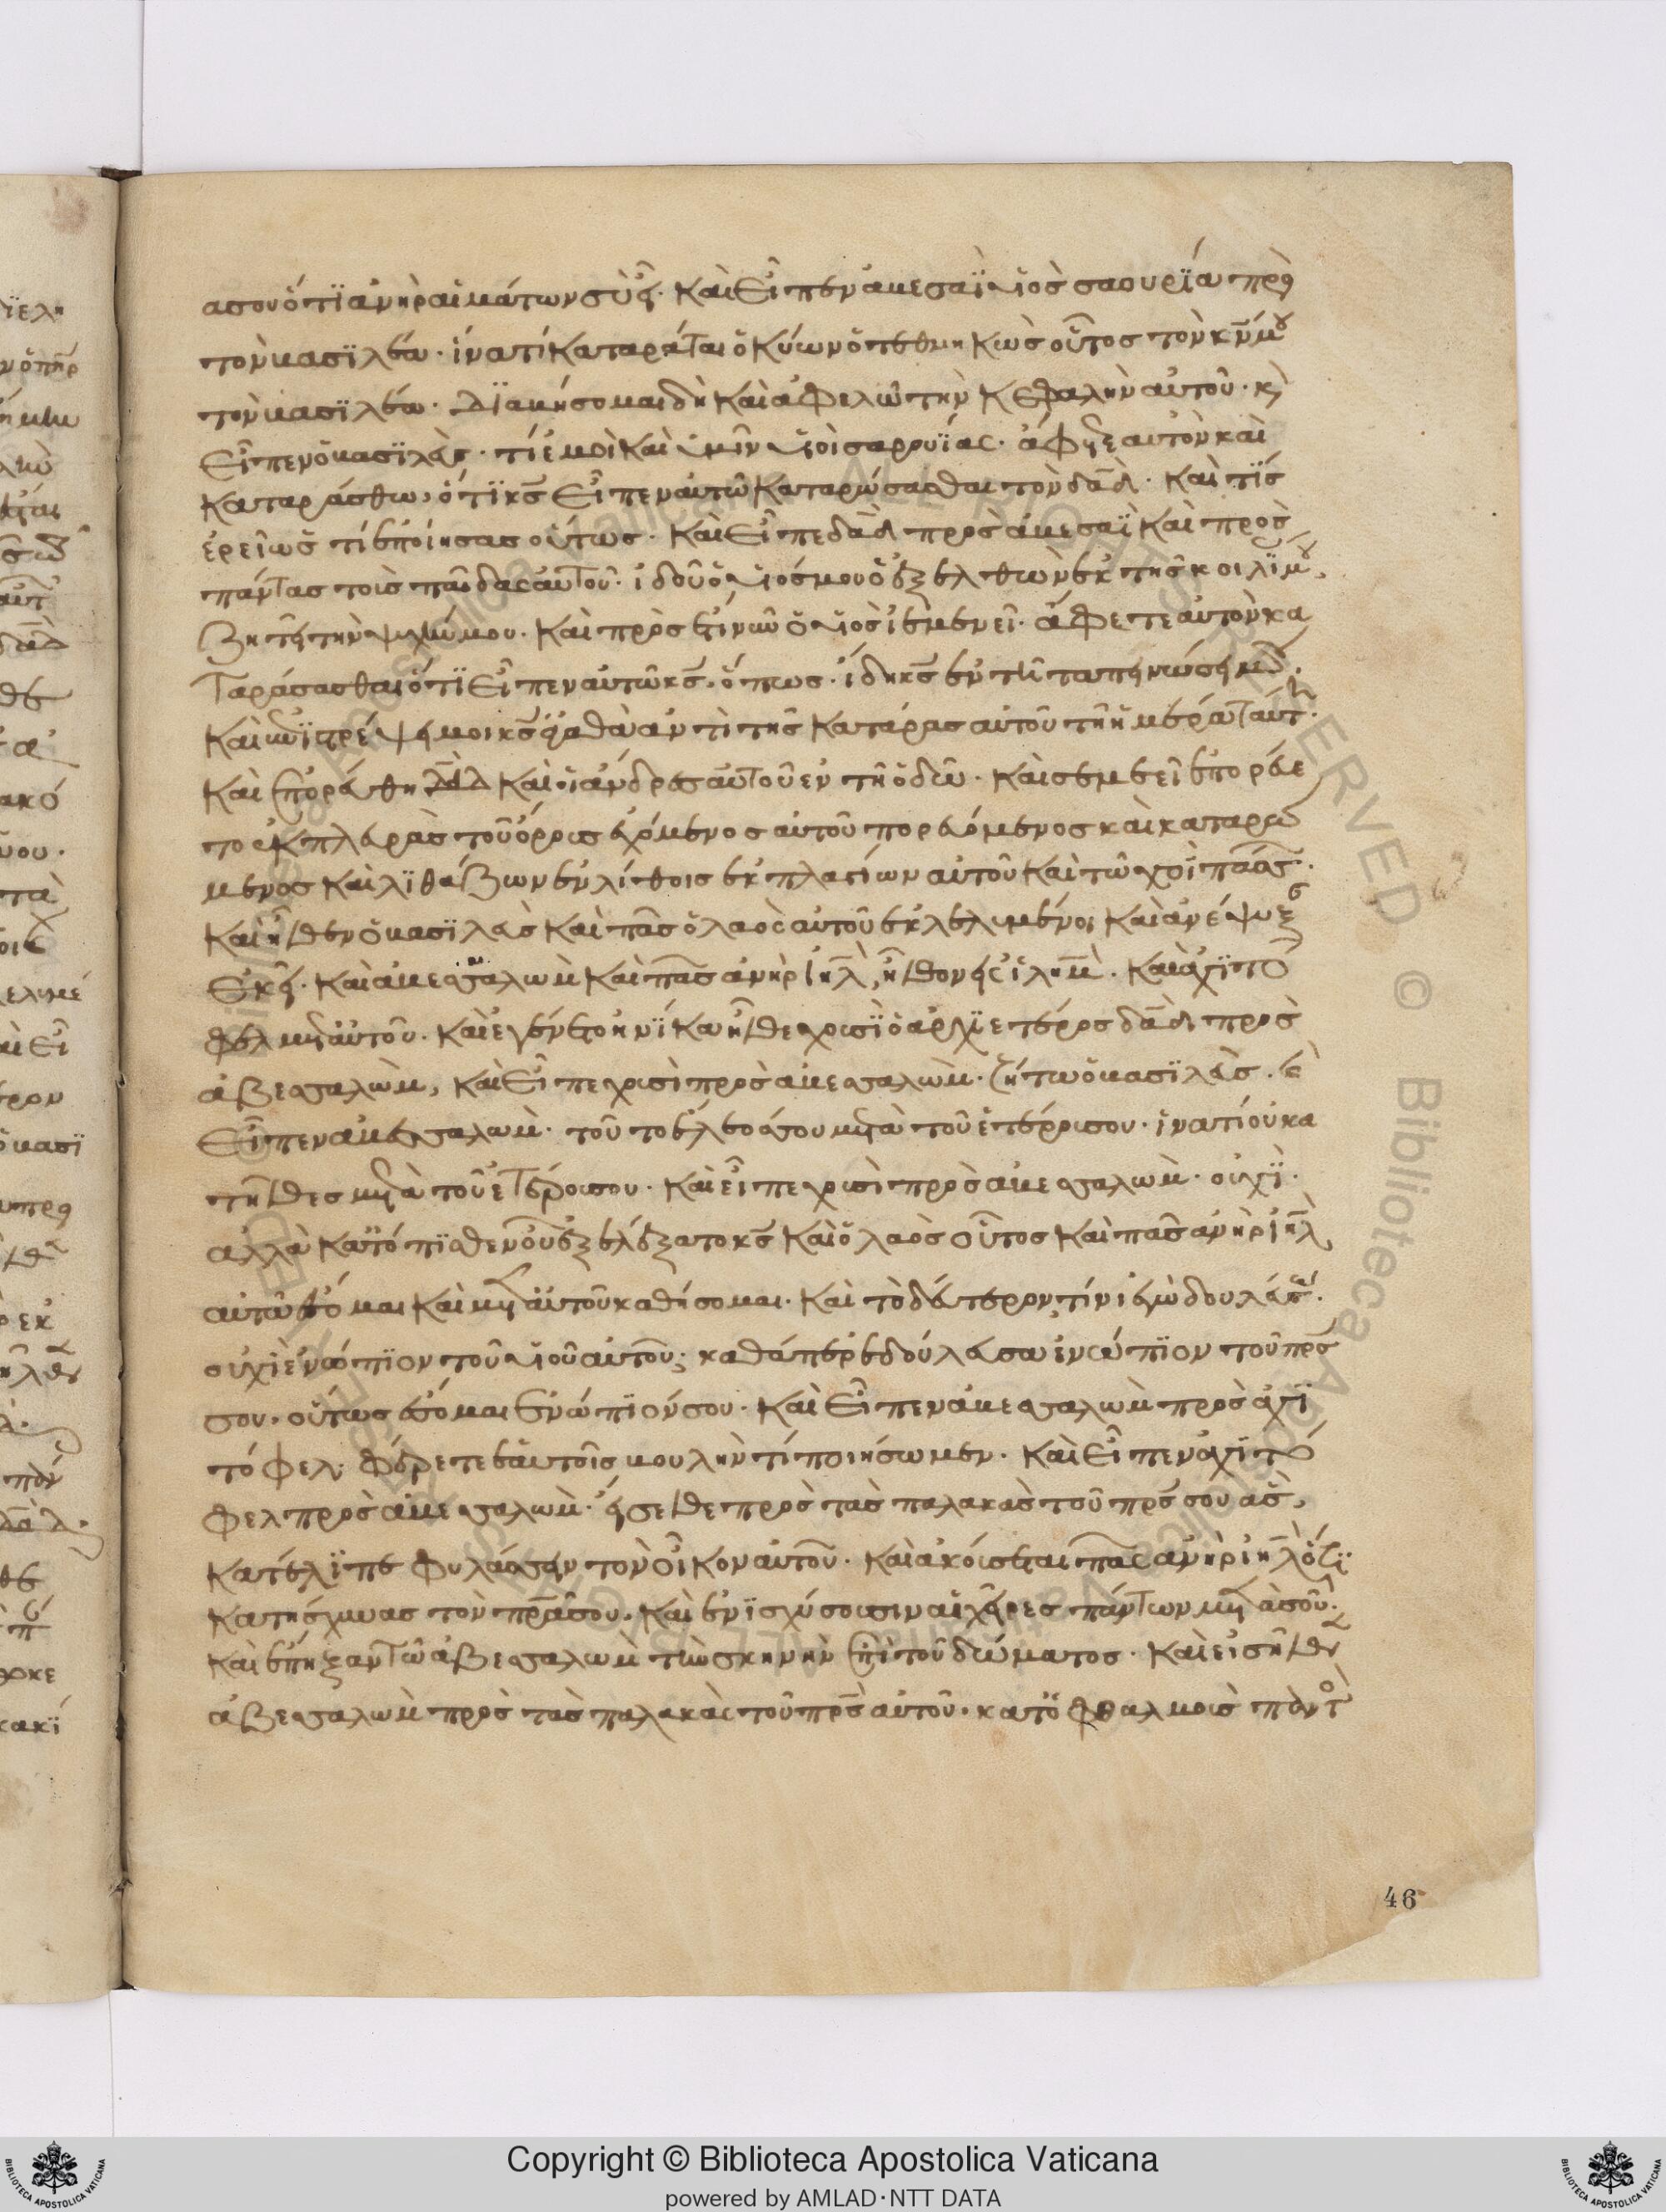 ασου ὅτι ἀνὴρ αἱμάτων σὺ εἶ. Καὶ εἶπεν ἀβεσαϊ υἱὸς σαουρία πρὸς
τὸν βασιλέα. ἱνατί καταρᾶται ὁ κύων ὁ τεθνηκὼς οὗτος τὸν κ̅ν̅ μου
τὸν βασιλέα. Διαβήσομαι δὴ καὶ ἀφελῶ τὴν κεφαλὴν αὐτοῦ. κ̀
εἶπεν ὁ βασιλεύς. τί ἐμοὶ καὶ ὑμῖν υἱοὶ σαρουίας. ἄφετε αὐτὸν καὶ
καταράσθω, ὅτι κ̅ς̅ εἶπεν αὐτῶ καταράσασθαι τὸν δ̅α̅δ̅. καὶ τίς
ἐρεῖ ὡς τί ἐποίησας οὕτως. Καὶ εἶπε δ̅α̅δ̅ πρὸς ἀβεσαϊ καὶ πρὸς
πάντας τοὺς παῖδας αὐτοῦ. ἰδοὺ ὁ υἱός μου ὁ ἐξελθὼν ἐκ τῆς κοιλί μου,
ζητεῖ τὴν ψυχήν μου. Καὶ πρὸς ἔτι νῦν ὁ υἱὸς ἰεμενεῖ. ἄφετε αὐτὸν κα
ταράσασθαι ὅτι εἶπεν αὐτῶ κ̅ς̅. ὅπως ἴδη κ̅ς̅ ἐν τῆ ταπεινώσει μου.
Καὶ ἐπιστρέψει μοι κ̅ς̅ ἀγαθὰ ἀντὶ τῆς κατάρας αὐτοῦ τῆ ἡμέρα ταύτ.
Καὶ ἐπορεύθη δ̅α̅δ̅ καὶ οἱ ἄνδρες αὐτοῦ ἐν τῆ ὁδῶ. Καὶ σεμεεῖ ἐπορεύε
το ἐκ πλευρᾶς τοῦ ὄρους ἐχόμενος αὐτοῦ πορευόμενος καὶ καταρώ
μενος καὶ λιθάζων ἐν λίθοις ἐκ πλαγίων αὐτοῦ καὶ τῶ χοῒ πάσσ.
Καὶ ἦλθεν ὁ βασιλεὺς καὶ πᾶς ὁ λαὸς αὐτοῦ ἐκλελυμένοι καὶ ἀνέψυξ
ἐκεῖ. Καὶ ἀβεσσαλὼμ καὶ πᾶς ἀνὴρ ι̅η̅λ̅, ἦλθον εἰς ἱλη̅μ̅. Καὶ ἀχιτό
φελ μετ αὐτοῦ. Καὶ ἐγένετο ἡνίκα ἦλθε χουσὶ ὁ ἀρχιεταῖρος δ̅α̅δ̅ πρὸς
ἀβεσσαλὼμ, καὶ εἶπε χουσὶ πρὸς ἀβεσσαλὼμ. ζήτω ὁ βασιλεὺς. κ̀
εἶπεν ἀβεσσαλὼμ. τοῦτο τὸ ἔλεός σου μετὰ τοῦ ἑτέρου σου. ἱνατί οὐκ ἀ
πῆλθες μετὰ τοῦ ἑτέρου σου. Καὶ εἶπε χουσὶ πρὸς ἀβεσσαλὼμ. οὐχὶ.
ἀλλὰ κατόπισθεν οὗ ἐξελέξατο κ̅ς̅ καὶ ὁ λαὸς οὗτος καὶ πᾶς ἀνὴρ ι̅η̅λ̅,
αὐτῶ ἔσομαι καὶ μετ αὐτοῦ καθήσομαι. Καὶ τὸ δεύτερον, τίνι ἐγὼ δουλεύσ.
οὐχὶ ἐνώπιον τοῦ υἱοῦ αὐτοῦ; καθάπερ ἐδούλευσα ἐνώπιον τοῦ π̅ρ̅ς̅
σου. οὕτως ἔσομαι ἐνώπιόν σου. Καὶ εἶπεν ἀβεσσαλὼμ πρὸς ἀχι
τόφελ. φέρετε ἑαυτοῖς βουλὴν τί ποιήσωμεν. Καὶ εἶπεν ἀχιτό
φελ πρὸς ἀβεσσαλὼμ. εἴσελθε πρὸς τὰς παλακὰς τοῦ π̅ρ̅ς̅ σου ἃς,
κατέλιπε φυλάσσειν τὸν οἶκον αὐτοῦ. καὶ ἀκούσεται πᾶς ἀνὴρ ι̅η̅λ̅ ὅτι
κατήσχυνας τὸν π̅ρ̅α̅ σου. καὶ ἐνισχύσουσιν αἱ χεῖρες πάντων μετὰ σοῦ.
καὶ ἔπηξαν τῶ ἀβεσσαλὼμ τὴν σκηνὴν ἐπὶ τοῦ δώματος. Καὶ εἰσῆλθεν
ἀβεσσαλὼμ πρὸς τὰς παλακὰς τοῦ π̅ρ̅ς̅ αὐτοῦ. κατ ὀφθαλμοὺς παντὸ
46
Copyright © Biblioteca Apostolica Vaticana
powered by AMLAD·NTT DATA